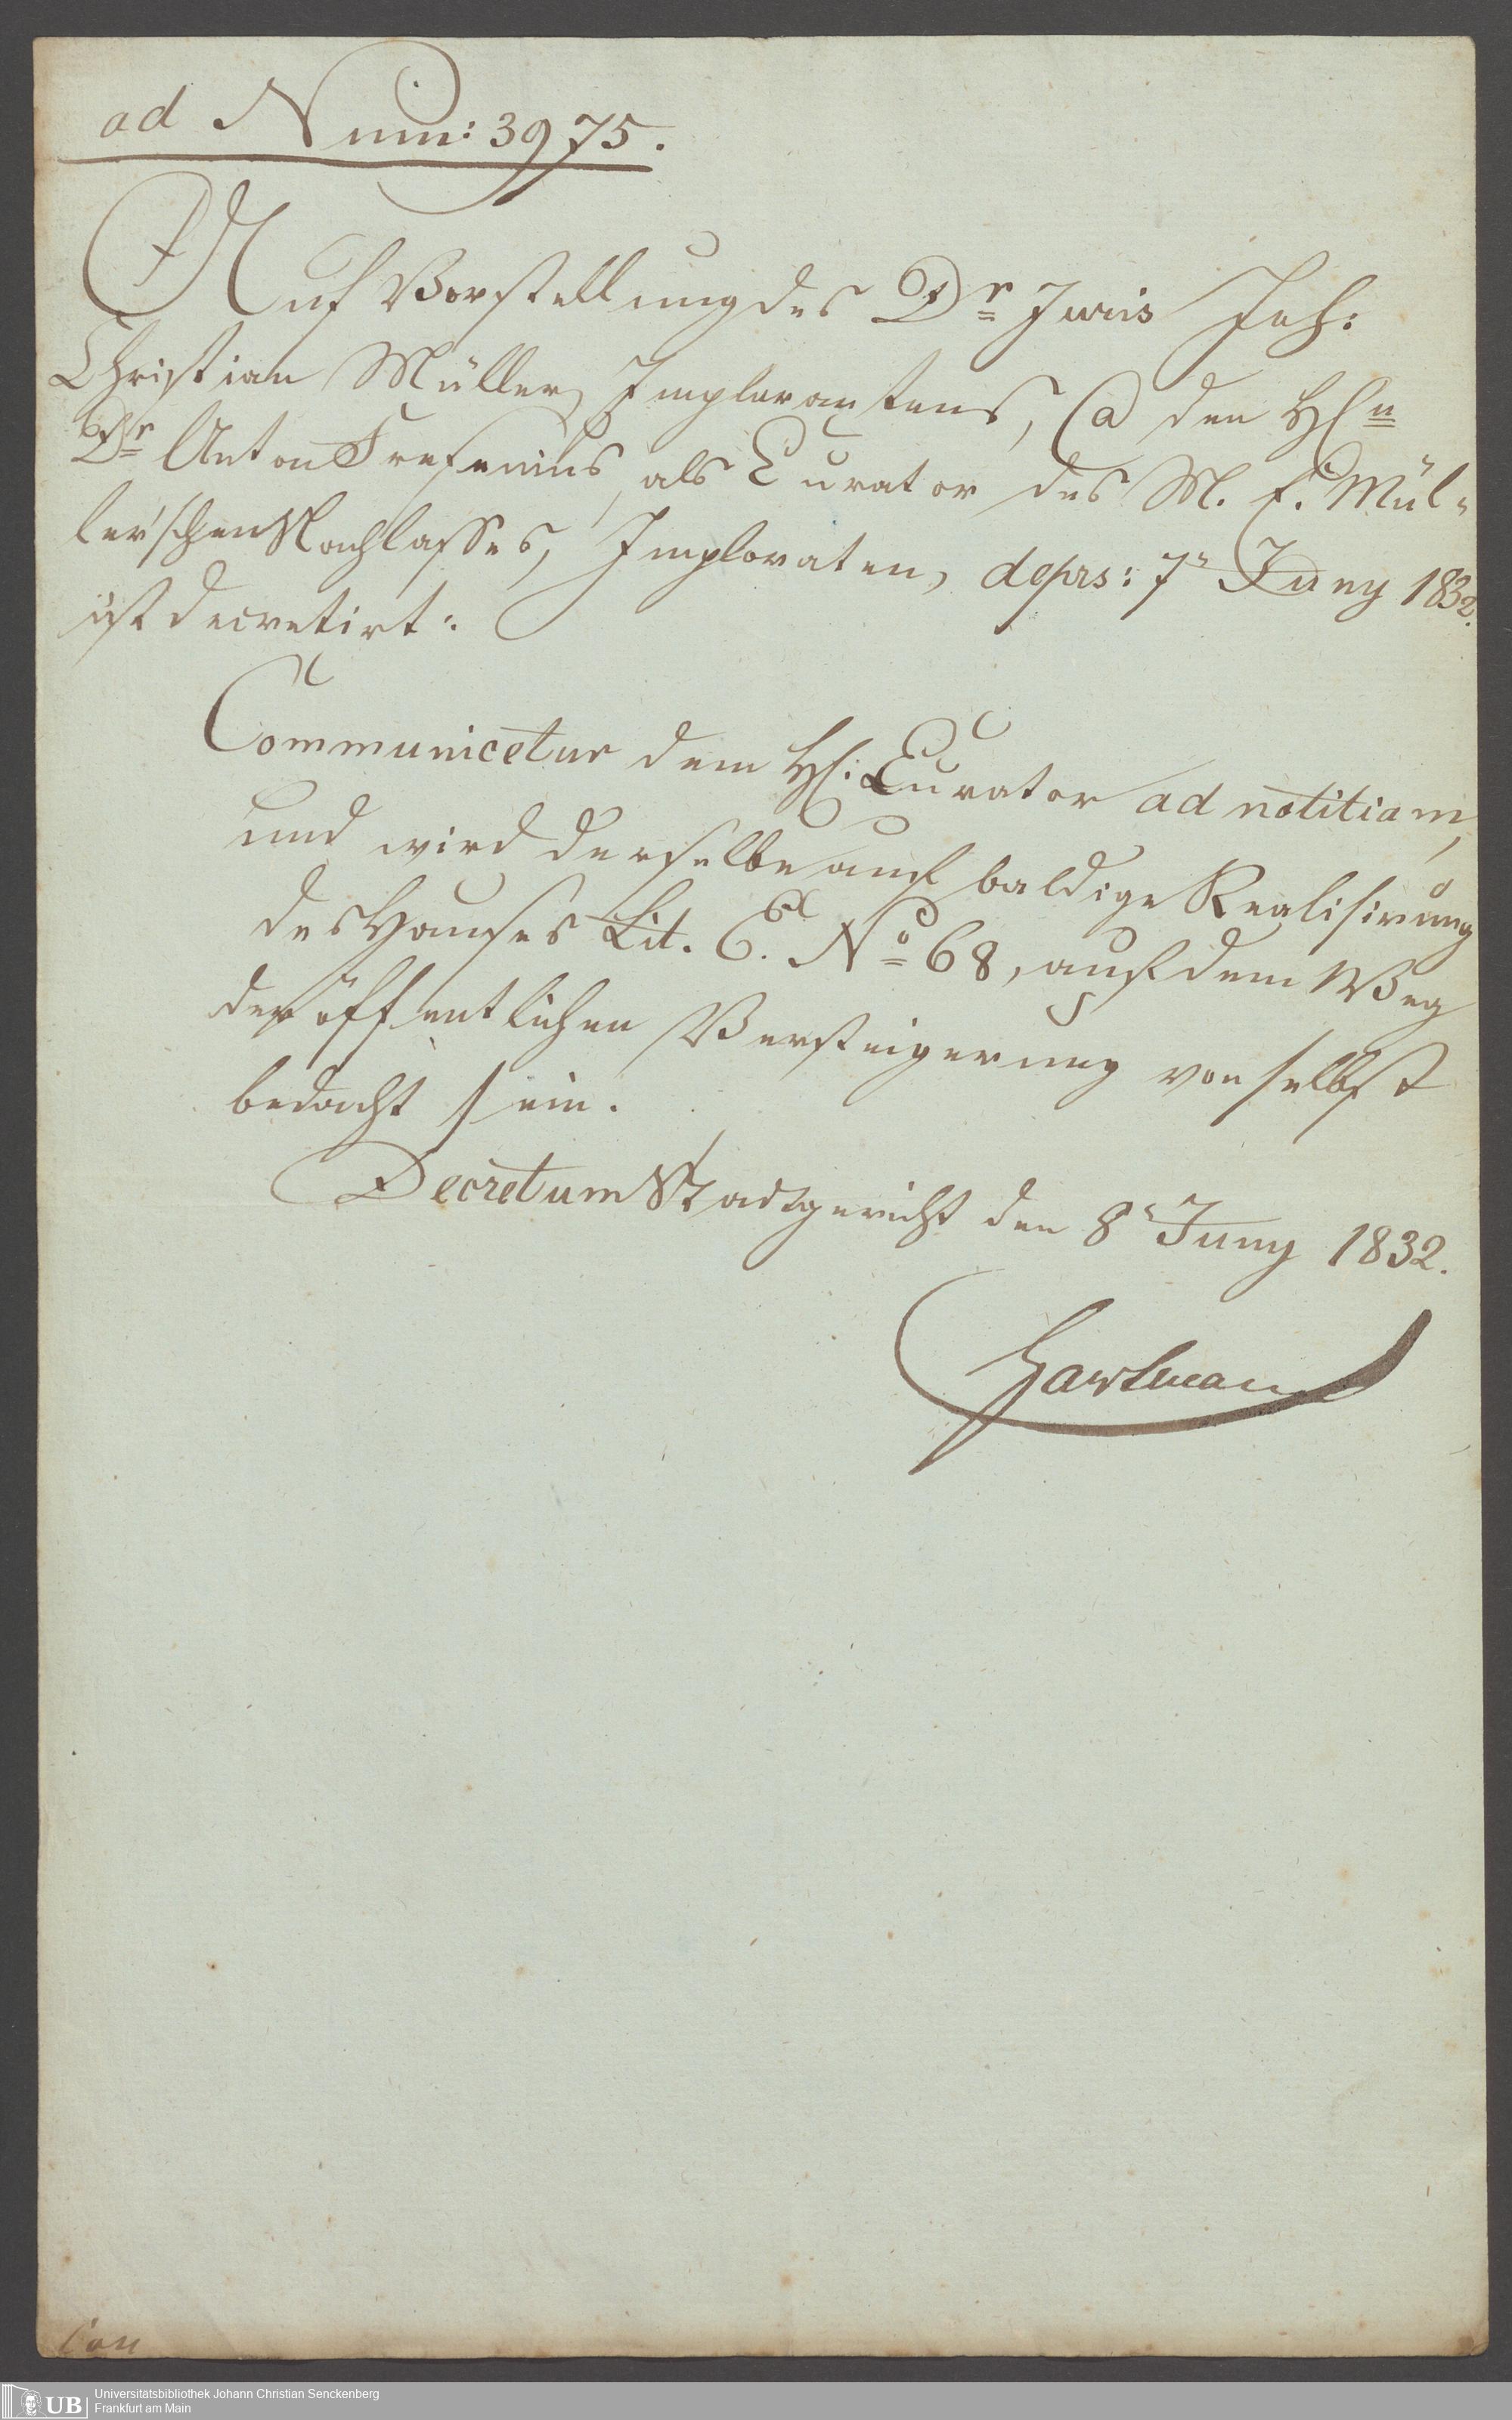 ad Num: 3975.
Auf Vorstellung des Dr Juris Joh:
Christian Müller, Implorantens, Ca den Hln
Dr Anton Fresenius, als Curator des M. F. Mül-
ler'schen Nachlasses, Imploraten, de prs: 7n Juny 1832.
ist decretirt:
Communicetur dem Hl: Curator ad notitiam,
und wird derselbe auf baldige Realisirung
des Hauses Lit. E. No 68, auf dem Weg
der öffentlichen Versteigerung von selbst
bedacht sein.
Decretum Stadtgericht den 8n Juny 1832.
Hartmann
Con
Universitätsbibliothek Johann Christian Senckenberg
Frankfurt am Main
UB